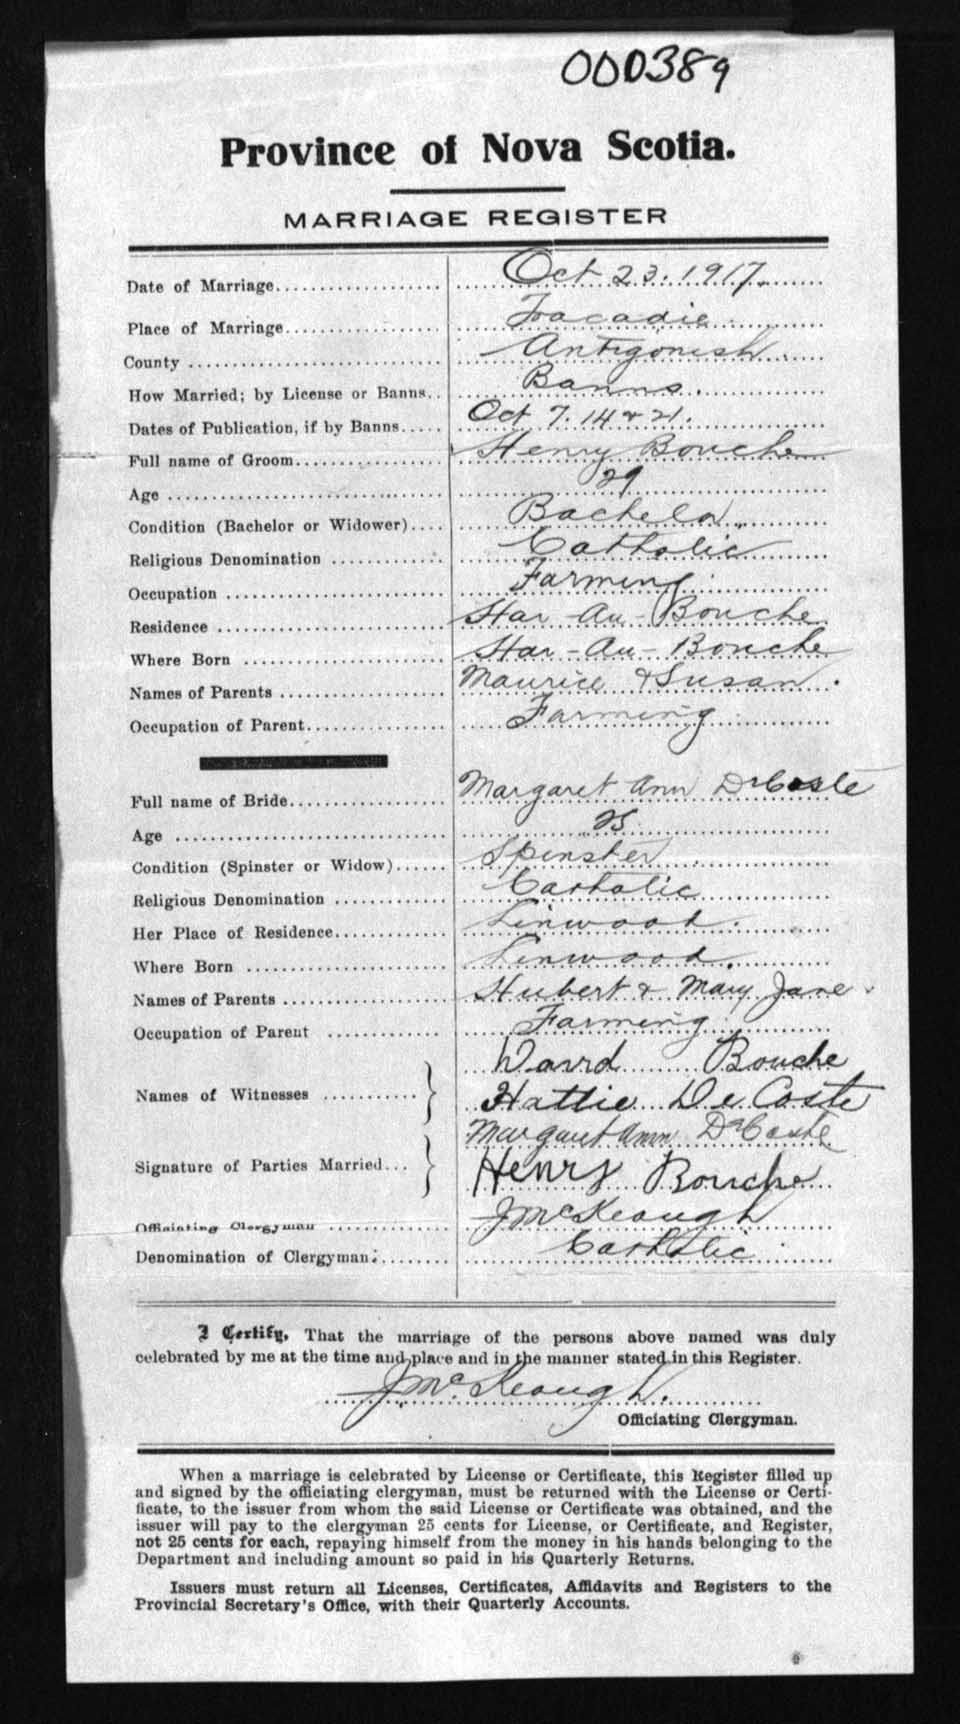 000389
Province of Nova Scotia.
MARRIAGE REGISTER
Date of Marriage Oct 23. 1917.
Place of Marriage Tracadie
County Antigonish
How Married; by License or Banns Banns.
Dates of Publication, if by Banns Oct 7. 14 & 21.
Full name of Groom Henry Bouche
Age 29
Condition (Bachelor or Widower) Bachelor
Religious Denomination Catholic
Occupation Farming
Residence Har-Au-Bouche
Where Born Har-Au-Bouche
Names of Parents Maurice & Susan.
Occupation of Parent Farming
Full name of Bride Margaret Ann DeCoste
Age 25
Condition (Spinster or Widow) Spinster
Religious Denomination Catholic
Her Place of Residence Linwood.
Where Born Linwood.
Names of Parents Hubert & Mary Jane.
Occupation of Parent Farming
Names of Witnesses David Bouche
Hattie De Coste
Signature of Parties Married Margaret Ann DeCoste
Henry Bouche
Officiating Clergyman J McKeough
Denomination of Clergyman Catholic
I Certify, That the marriage of the persons above named was duly
celebrated by me at the time and place and in the manner stated in this Register.
J McKeough.
Officiating Clergyman.
When a marriage is celebrated by License or Certificate, this Register filled up
and signed by the officiating clergyman, must be returned with the License or Certi-
ficate, to the issuer from whom the said License or Certificate was obtained, and the
issuer will pay to the clergyman 25 cents for License, or Certificate, and Register,
not 25 cents for each, repaying himself from the money in his hands belonging to the
Department and including amount so paid in his Quarterly Returns.
Issuers must return all Licenses, Certificates, Affidavits and Registers to the
Provincial Secretary's Office, with their Quarterly Accounts.